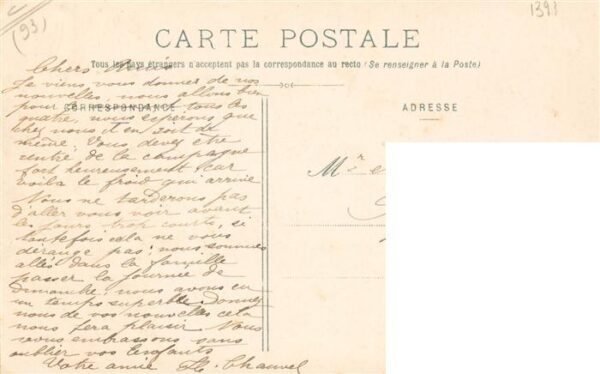 (93)
1391
CARTE POSTALE
Tous les pays étrangers n'acceptent pas la correspondance au recto (Se renseigner à la Poste)
CORRESPONDANCE
ADRESSE
Chers Amis
Je viens vous donner de nos
nouvelles, nous allons bien
pour tous les
quatre, nous esperons que
chez nous il en soit de
même. Vous devez être
rentré de la campagne
fort heureusement car
voila le froid qui arrive
Nous ne tarderons pas
d'aller vous voir avant
les jours trop courts, si
toutefois cela ne vous
dérange pas; nous sommes
allés dans la famille
passer la journée de
Dimanche; nous avons eu
un temps superbe. Donnez
nous de vos nouvelles cela
nous fera plaisir. Nous
vous embrassons sans
oublier vos enfants
Votre amie Chauvel
Mr e